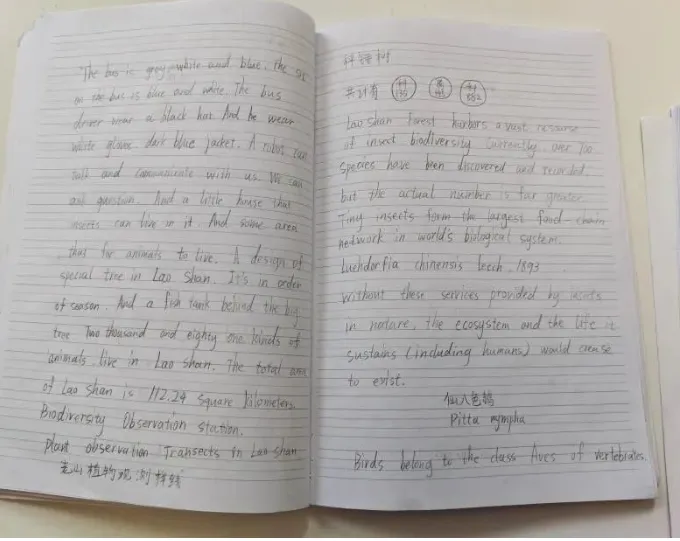 The bus is grey white and blue. The
on the bus is blue and white. The bus
driver wear a black hat. And he wear
white gloves dark blue jacket. A robot can
talk and communicate with us. We can
ask question. And a little house that
insects can live in it. And some area
that for animals to live. A design of
special tree in Lao Shan. It's in order
of season. And a fish tank behind the big
tree Two thousand and eighty one kinds of
animals live in Lao Shan. The total area
of Lao shan is 112.24 square kilometers.
Biodiversity Observation station.
Plant observation Transects in Lao shan
老山植物观测样线
科 树
共计有
Lao shan forest harbors a vast resourse
of insect biodiversity currently over 700
species have been discovered and recorded.
but the actual number is far greater.
Tiny insects form the largest food-chain
nedwork in world's biological system.
Luehdorfia chinensis Leech, 1893
without these services provided by insects
in nature, the ecosystem and the life it
sustains (including humans) would cease
to exist.
仙八色鸫
Pitta nympha
Birds belong to the class Aves of vertebrates.